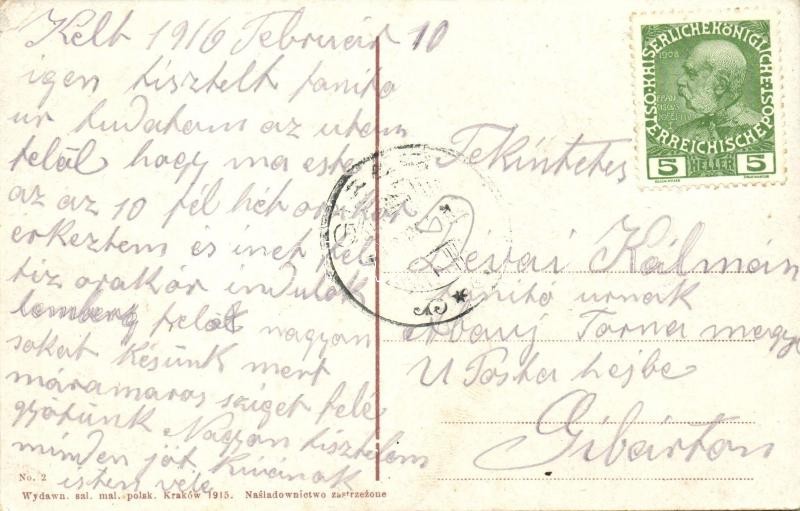 Kelt 1916 Február 10
igen tisztelt tanito
ur tudatom az utam
felöl hogy ma este
az az 10 fél hét orakor
erkeztem és inet fél
tiz orakor indulok
lemberg felöl nagyon
sokat késunk mert
máramaros sziget felé
gyötunk Nagyon tisztelem
minden jot kivánok
isten vele
Tekintetes
Dévai Kálmán
tanitó urnak
Abauj Torna megye
U Posta hejbe
Gibárton
KAISERLICHE KÖNIGLICHE
ÖSTERREICHISCHE POST
1908
FRANZ
JOSEF I
5 HELLER 5
No. 2
Wydawn. sal. mal. polsk. Kraków 1915. Naśladownictwo zastrzeżone